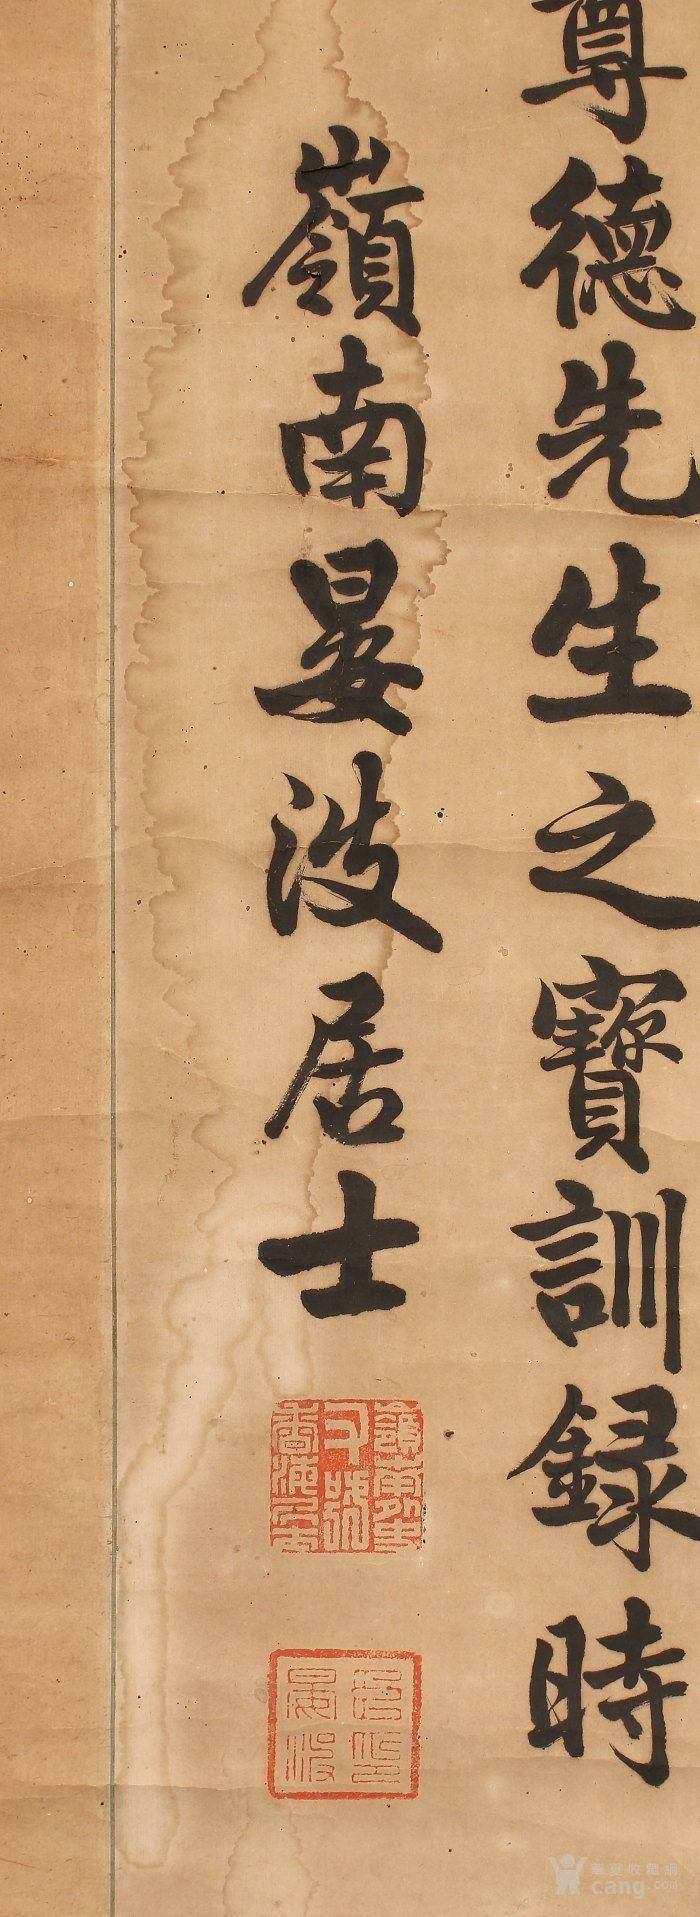 尊德先生之寶訓録時
嶺南晏波居士
華夏收藏網
cang.com